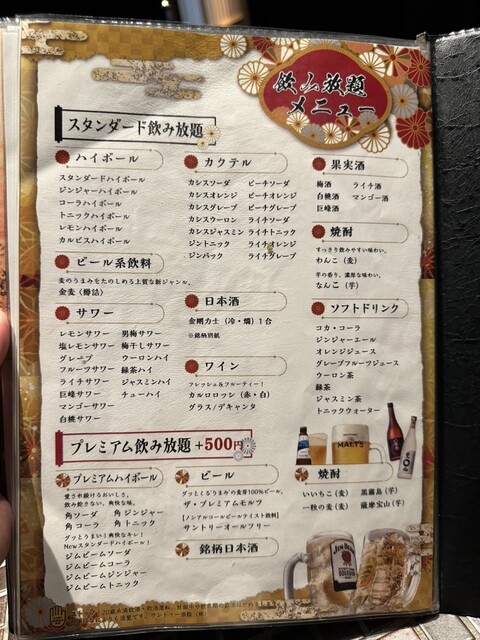 飲み放題
メニュー
スタンダード飲み放題
ハイボール
スタンダードハイボール
ジンジャーハイボール
コーラハイボール
トニックハイボール
レモンハイボール
カルピスハイボール
ビール系飲料
麦のうまみをたのしめる上質な新ジャンル。
金麦〈樽詰〉
サワー
レモンサワー 男梅サワー
塩レモンサワー 梅干しサワー
グレープ ウーロンハイ
フルーツサワー 緑茶ハイ
ライチサワー ジャスミンハイ
巨峰サワー チューハイ
マンゴーサワー
白桃サワー
カクテル
カシスソーダ ピーチソーダ
カシスオレンジ ピーチオレンジ
カシスグレープ ピーチグレープ
カシスウーロン ライチソーダ
カシスジャスミン ライチトニック
ジントニック ライチオレンジ
ジンバック ライチグレープ
日本酒
金剛力士（冷・燗）1合
※銘柄別紙
ワイン
フレッシュ&フルーティー！
カルロロッシ（赤・白）
グラス/デキャンタ
果実酒
梅酒 ライチ酒
白桃酒 マンゴー酒
巨峰酒
焼酎
すっきり飲みやすい味わい。
わんこ（麦）
芋の香り、濃厚な味わい。
なんこ（芋）
ソフトドリンク
コカ・コーラ
ジンジャーエール
オレンジジュース
グレープフルーツジュース
ウーロン茶
緑茶
ジャスミン茶
トニックウォーター
プレミアム飲み放題 +500円
プレミアムハイボール
愛され続けるおいしさ。
飲み飽きない、爽快な味。
角ソーダ 角ジンジャー
角コーラ 角トニック
グッとうまい！爽快なキレ！
Newスタンダードハイボール！
ジムビームソーダ
ジムビームコーラ
ジムビームジンジャー
ジムビームトニック
ビール
グッとくる"うまみ"の麦芽100%ビール。
ザ・プレミアムモルツ
[ノンアルコールビールテイスト飲料]
サントリーオールフリー
銘柄日本酒
焼酎
いいちこ（麦） 黒霧島（芋）
一粒の麦（麦） 薩摩宝山（芋）
MALT'S
JIM BEAM